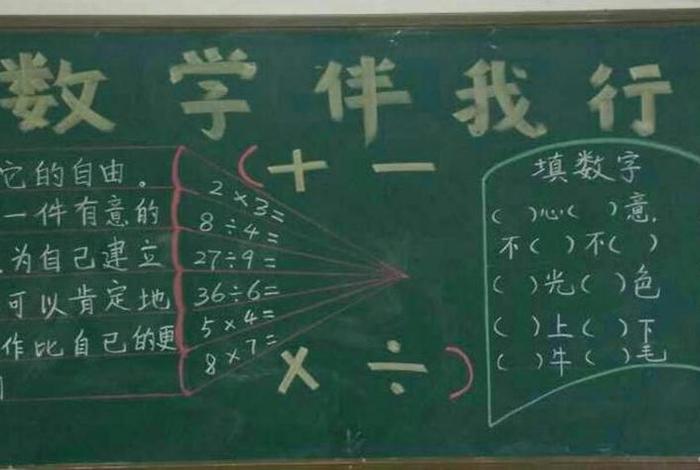 数学伴我行
它的自由。
一件有意的
为自己建立
可以肯定地
作比自己的更
2×3=
8÷4=
27÷9=
36÷6=
5×4=
8×7=
( + −
× ÷ )
填数字
( )心( )意,
不( )不( )
( )光( )色
( )上( )下
( )牛( )毛